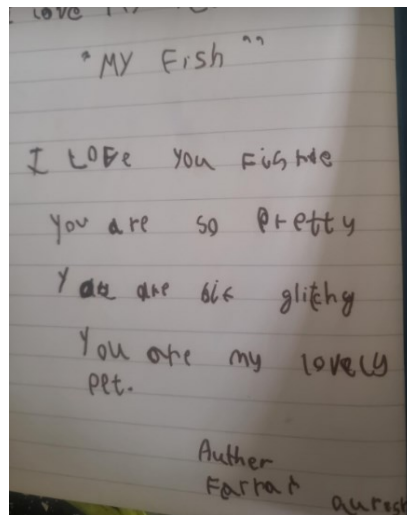 love
"MY Fish"
I LOVe you Fishie
you are so pretty
You are bit glitchy
You are my lovely
pet.
Auther
Farrar